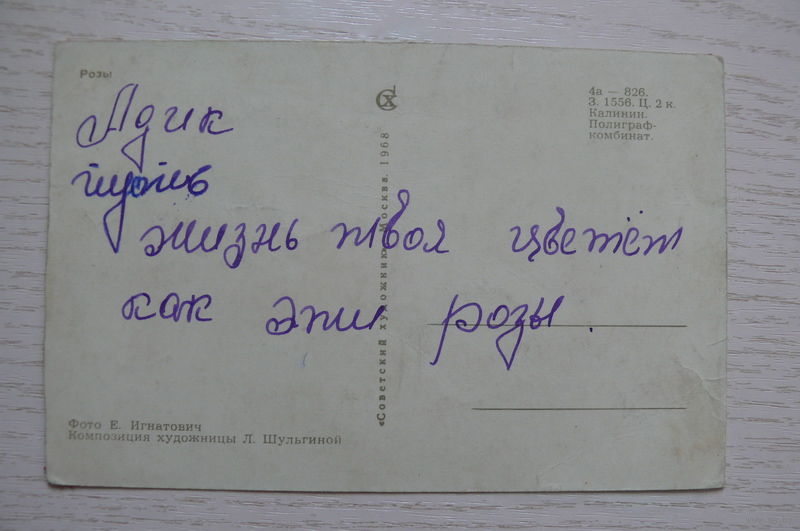 Розы
Адик
пусть
жизнь твоя цветёт
как эти розы.
СХ
4а — 826.
З. 1556. Ц. 2 к.
Калинин.
Полиграф-
комбинат.
«Советский художник» Москва. 1968
Фото Е. Игнатович
Композиция художницы Л. Шульгиной